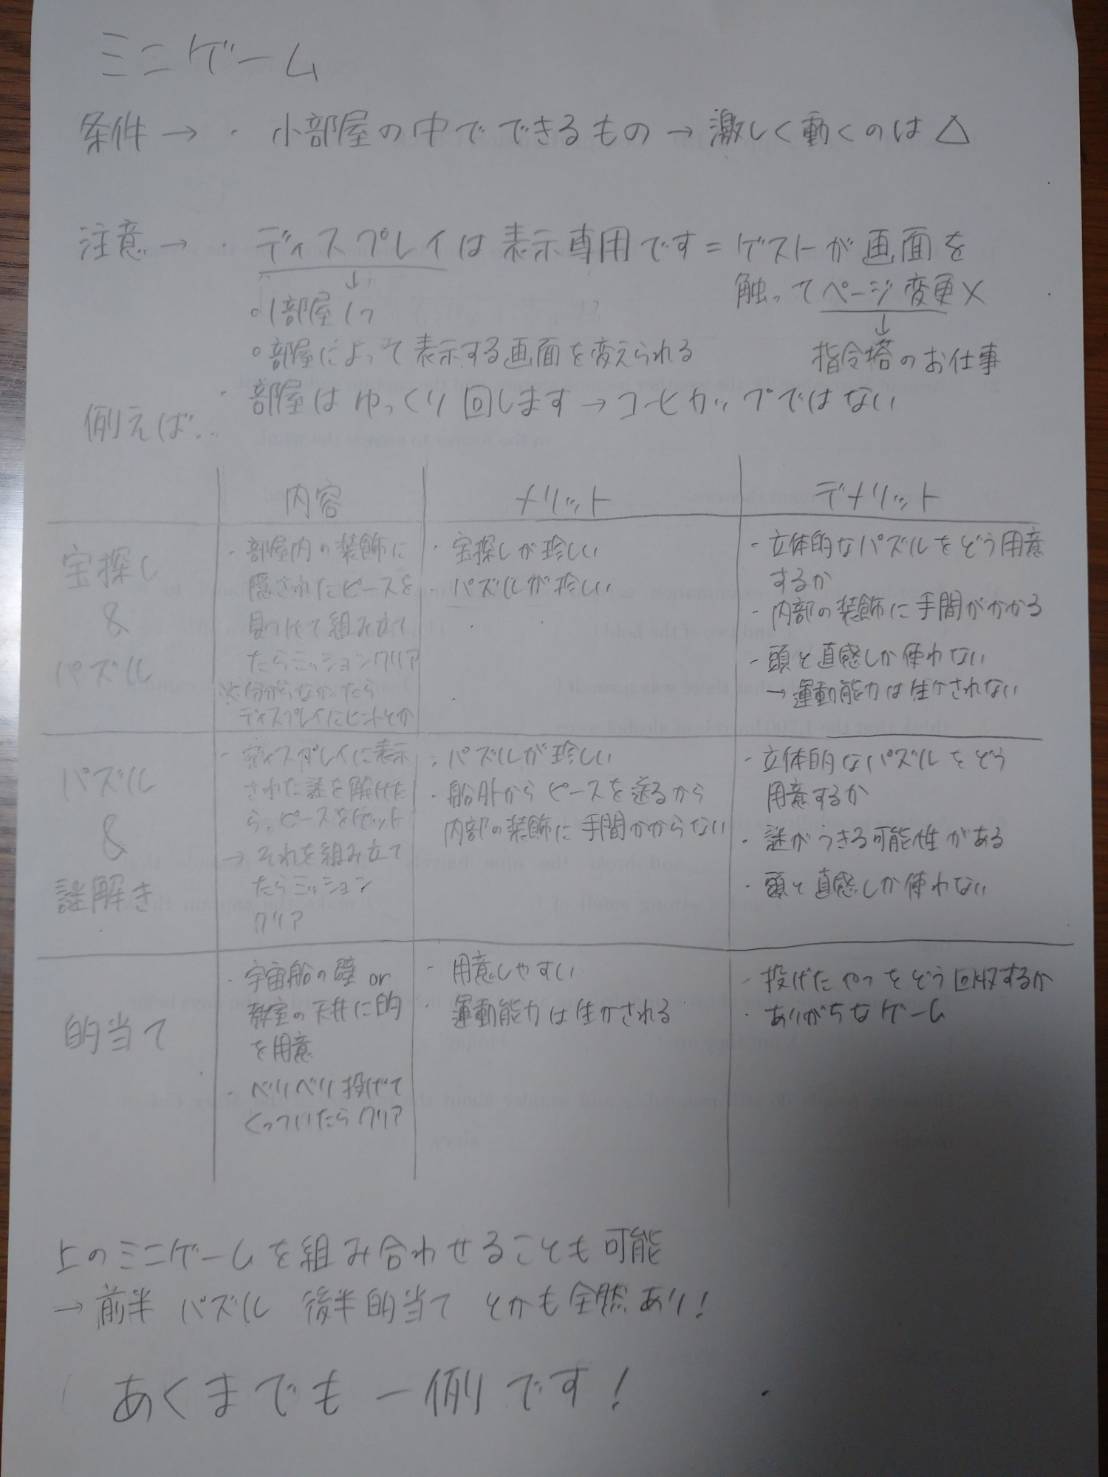 ミニゲーム
条件→・小部屋の中でできるもの→激しく動くのは△
注意→・ディスプレイは表示専用です=ゲストが画面を
触ってページ変更×
↓
指令塔のお仕事
↓
○1部屋1つ
○部屋によって表示する画面を変えられる
・部屋はゆっくり回します→コーヒカップではない
例えば…
内容
メリット
デメリット
宝探し
&
パズル
・部屋内の装飾に
隠されたピースを
見つけて組み立て
たらミッションクリア
※分からなかったら
ディスプレイにヒントとか
・宝探しが珍しい
・パズルが珍しい
・立体的なパズルをどう用意
するか
・内部の装飾に手間がかかる
・頭と直感しか使わない
→運動能力は生かされない
パズル
&
謎解き
・ディスプレイに表示
された謎を解けた
ら、ピースをゲット
→それを組み立て
たらミッション
クリア
・パズルが珍しい
・船外からピースを送るから
内部の装飾に手間かからない
・立体的なパズルをどう
用意するか
・謎がつきる可能性がある
・頭と直感しか使わない
的当て
・宇宙船の壁or
教室の天井に的
を用意
・ベリベリ投げて
くっついたらクリア
・用意しやすい
・運動能力は生かされる
・投げたやつをどう回収するか
・ありがちなゲーム
上のミニゲームを組み合わせることも可能
→前半 パズル 後半的当て とかも全然あり!
あくまでも一例です!